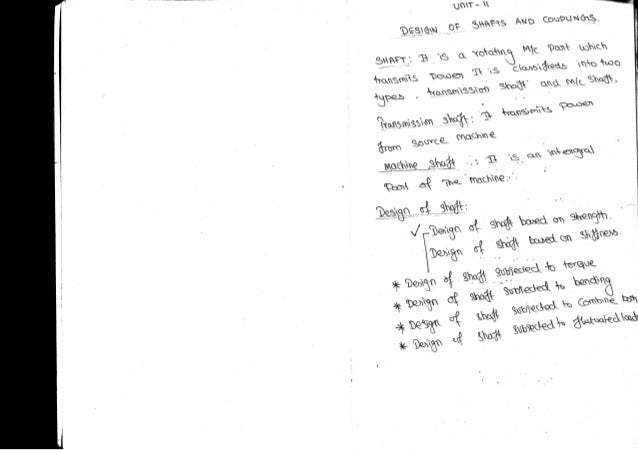 UNIT - II
DESIGN OF SHAFTS AND COUPLINGS.
SHAFT: It is a rotating M/c part which
transmits power It is classifieds into two
types, transmission shaft and m/c shaft.
Transmission shaft: It transmits power
from source machine
Machine shaft : It is an integral
Part of The machine.
Design of shaft:
✓ Design of shaft based on strength.
Design of shaft based on stiffness.
* Design of shaft subjected to torque
* Design of shaft subjected to bending
* Design of shaft subjected to combine both
* Design of shaft subjected to fluctuated loads